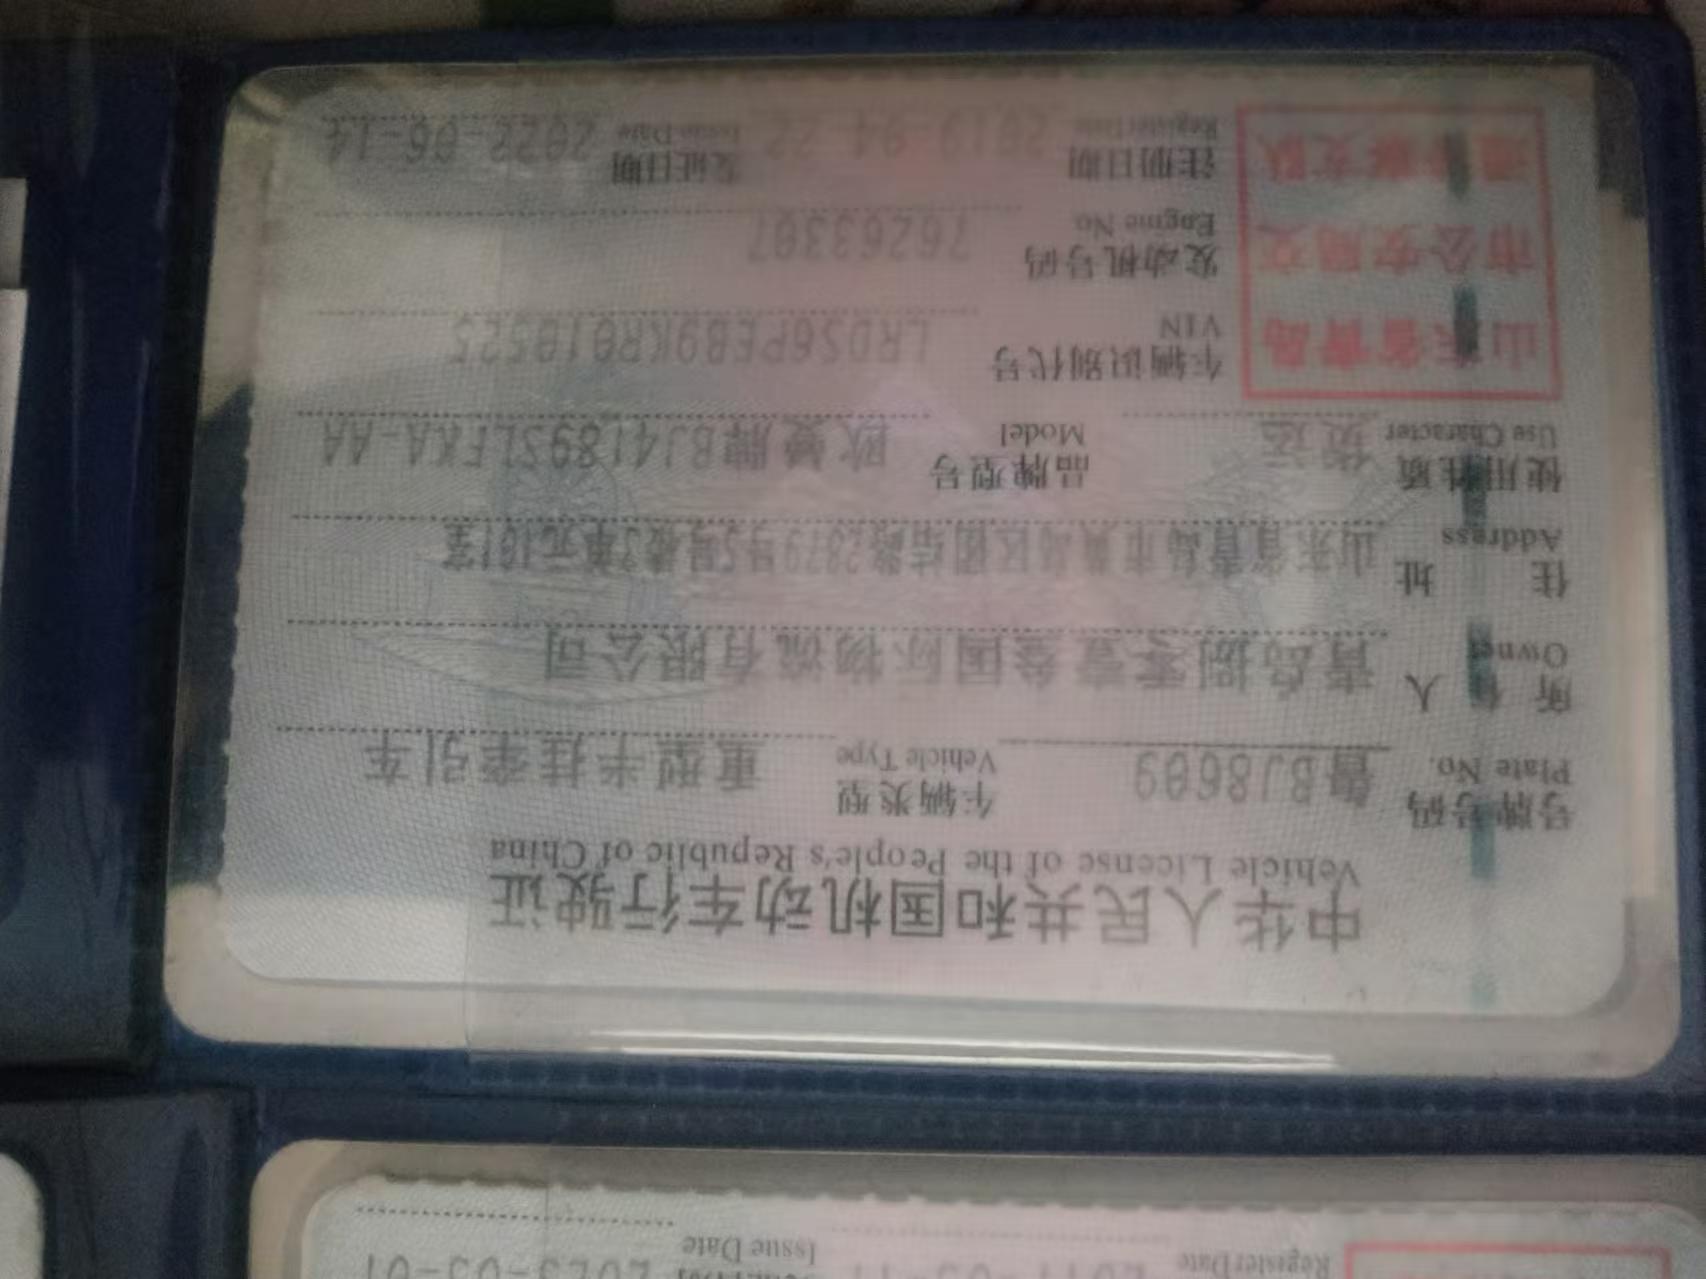 中华人民共和国机动车行驶证
Vehicle License of the People's Republic of China
号牌号码 鲁BJ8609 车辆类型 重型半挂牵引车
Plate No. Vehicle Type
所有人 青岛捌零壹叁国际物流有限公司
Owner
住址 山东省青岛市黄岛区团结路2879号5号楼3单元101室
Address
使用性质 货运 品牌型号 欧曼牌BJ4189SLFKA-AA
Use Character Model
山东省青岛
市公安局交
通警察支队
车辆识别代号 LRDS6PEB9KR010525
VIN
发动机号码 76263307
Engine No.
注册日期 2019-04-22 发证日期 2022-06-14
Register Date Issue Date
Register Date Issue Date 2023-03-01